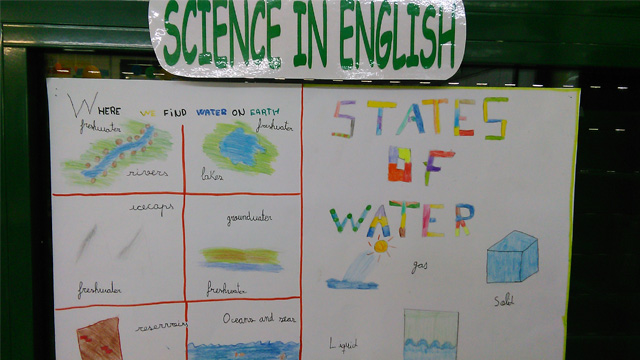 SCIENCE IN ENGLISH
WHERE WE FIND WATER ON EARTH
freshwater
rivers
freshwater
lakes
icecaps
freshwater
groundwater
freshwater
reservoirs
Oceans and seas
STATES
OF
WATER
gas
Solid
Liquid